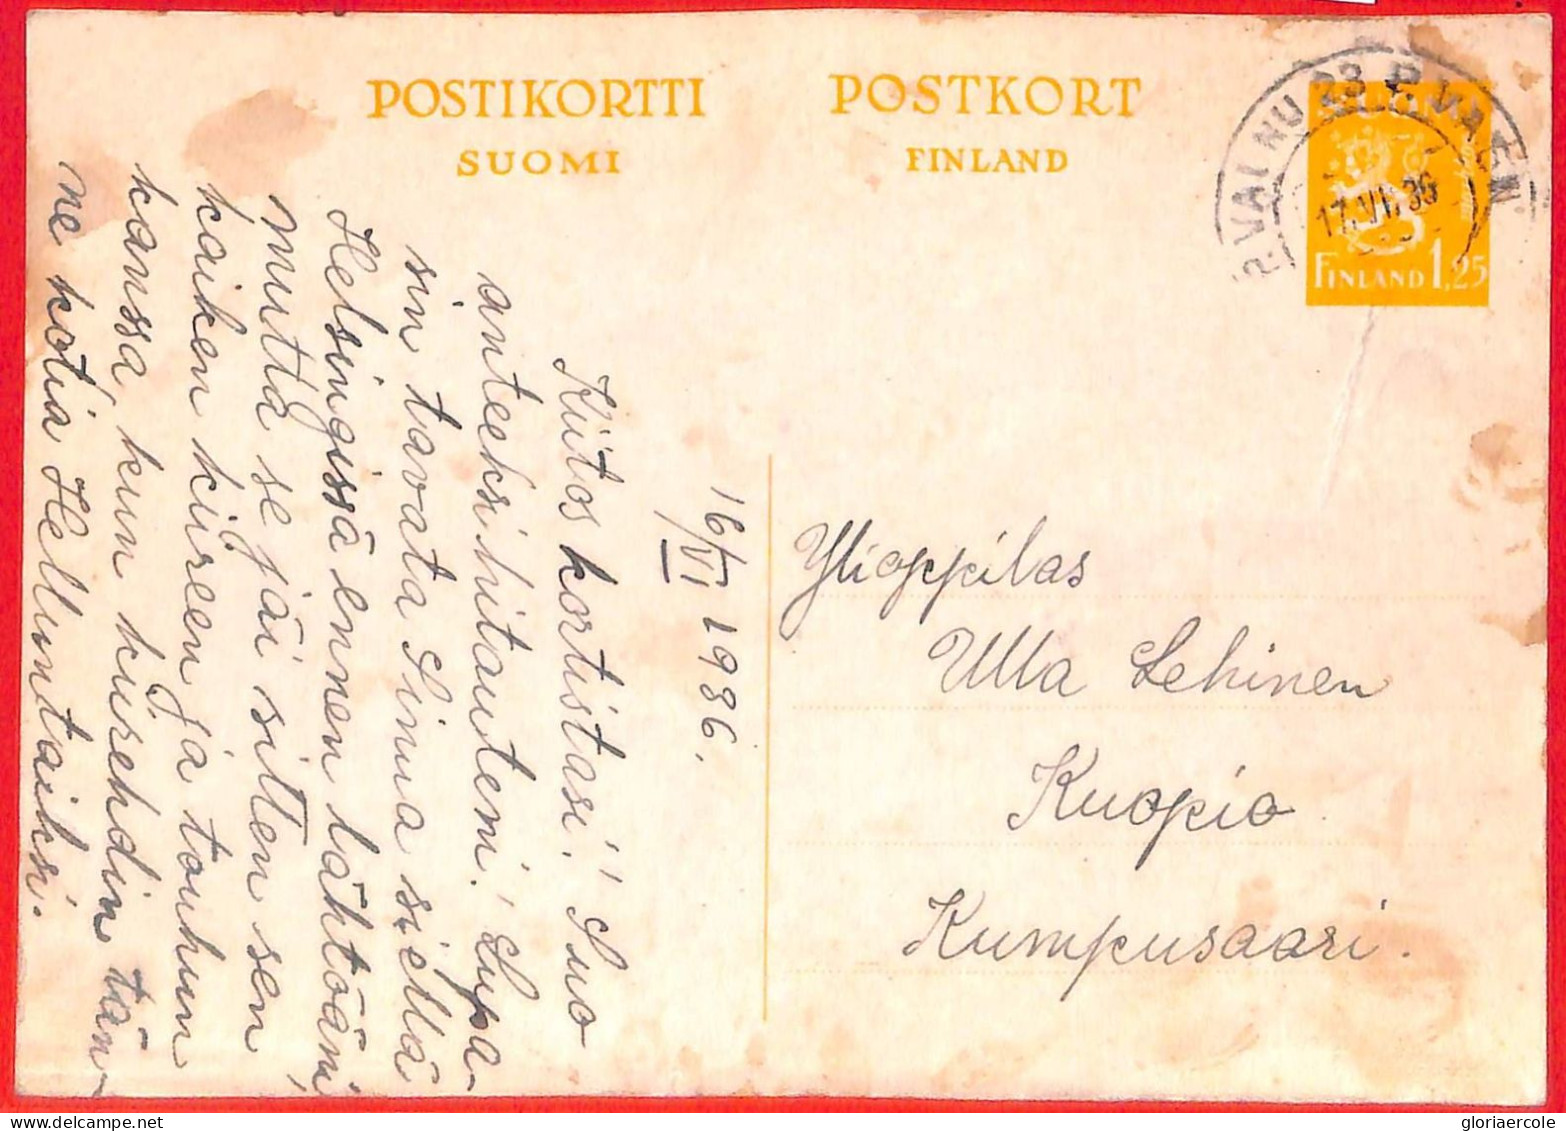 POSTIKORTTI POSTKORT
SUOMI FINLAND
17.VI.36
FINLAND 1,25
16/VI 1936.
Kiitos kortistasi! Suo
anteeksi hitauteni! Lupa-
sin tavata Sinua siellä
Helsingissä ennen lähtöäni,
mutta se jäi sitten sen
kaiken kiireen ja touhun
kanssa, kun kiirehdin tän-
ne kotia Helluntaiksi.
Ylioppilas
Ulla Lehinen
Kuopio
Kumpusaari.
gloriaercole